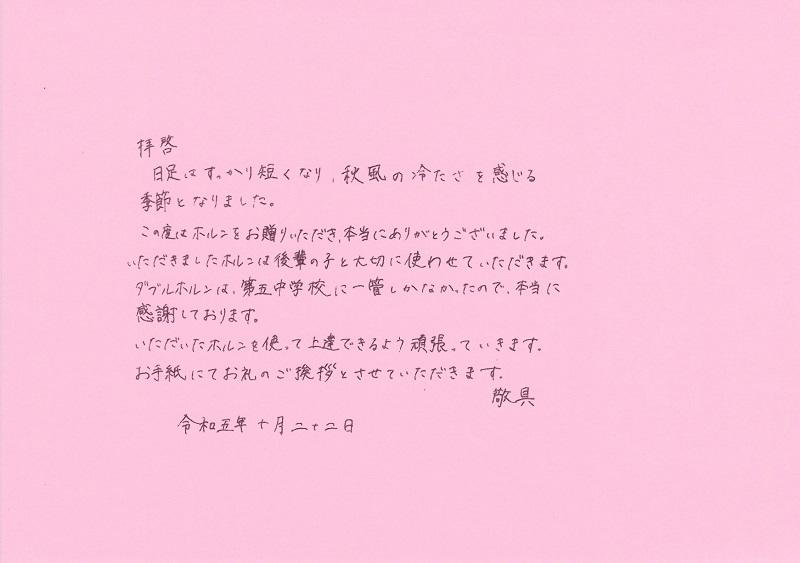 拝啓
日足はすっかり短くなり、秋風の冷たさを感じる
季節となりました。
この度はホルンをお贈りいただき、本当にありがとうございました。
いただきましたホルンは後輩の子と大切に使わせていただきます。
ダブルホルンは、第五中学校に一管しかなかったので、本当に
感謝しております。
いただいたホルンを使って上達できるよう頑張っていきます。
お手紙にてお礼のご挨拶とさせていただきます。
敬具
令和五年十月二十二日